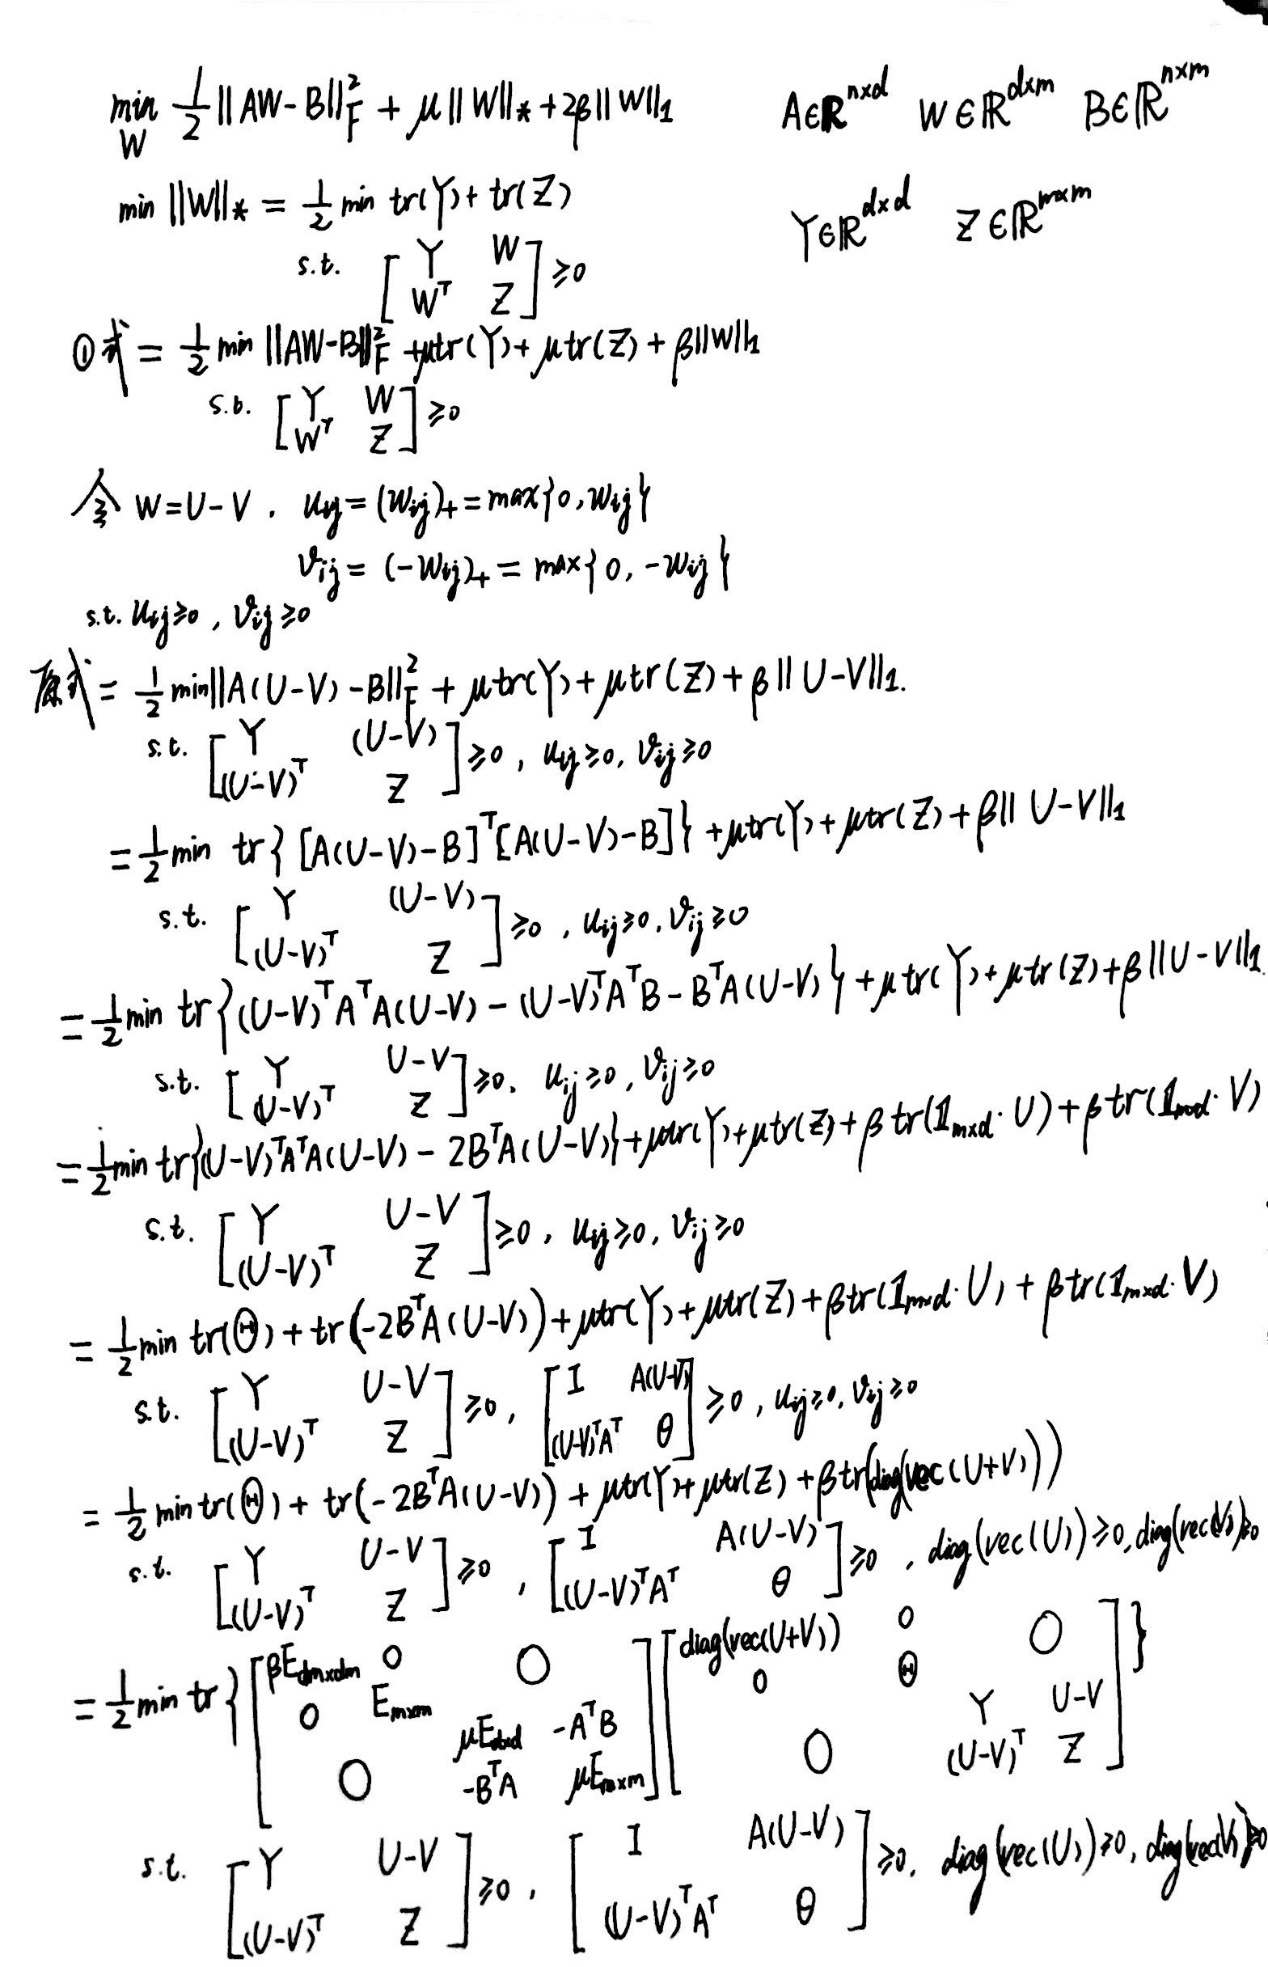 min_W 1/2 ||AW-B||_F^2 + μ||W||_* + 2β||W||_1   A∈R^{n×d}  W∈R^{d×m}  B∈R^{n×m}
min ||W||_* = 1/2 min tr(Y)+tr(Z)   Y∈R^{d×d}  Z∈R^{m×m}
s.t. [Y W; W^T Z] ≥0
①式 = 1/2 min ||AW-B||_F^2 +μtr(Y)+μtr(Z)+β||W||_1
s.t. [Y W; W^T Z] ≥0
令 W=U-V. u_ij=(w_ij)_+=max{0,w_ij}
v_ij=(-w_ij)_+=max{0,-w_ij}
s.t. u_ij≥0, v_ij≥0
原式= 1/2 min||A(U-V)-B||_F^2 + μtr(Y)+μtr(Z)+β||U-V||_1.
s.t. [Y (U-V); (U-V)^T Z] ≥0, u_ij≥0, v_ij≥0
= 1/2 min tr{[A(U-V)-B]^T[A(U-V)-B]}+μtr(Y)+μtr(Z)+β||U-V||_1
s.t. [Y (U-V); (U-V)^T Z] ≥0, u_ij≥0, v_ij≥0
= 1/2 min tr{(U-V)^T A^T A(U-V) - (U-V)^T A^T B - B^T A(U-V)}+μtr(Y)+μtr(Z)+β||U-V||_1
s.t. [Y U-V; (U-V)^T Z] ≥0. u_ij≥0, v_ij≥0
= 1/2 min tr{(U-V)^T A^T A(U-V) - 2B^T A(U-V)}+μtr(Y)+μtr(Z)+βtr(1_{m×d}·U)+βtr(1_{m×d}·V)
s.t. [Y U-V; (U-V)^T Z] ≥0, u_ij≥0, v_ij≥0
= 1/2 min tr(Θ)+tr(-2B^T A(U-V))+μtr(Y)+μtr(Z)+βtr(1_{m×d}·U)+βtr(1_{m×d}·V)
s.t. [Y U-V; (U-V)^T Z] ≥0, [I A(U-V); (U-V)^T A^T θ] ≥0, u_ij≥0, v_ij≥0
= 1/2 min tr(Θ)+tr(-2B^T A(U-V))+μtr(Y)+μtr(Z)+βtr(diag(vec(U+V)))
s.t. [Y U-V; (U-V)^T Z] ≥0, [I A(U-V); (U-V)^T A^T θ] ≥0, diag(vec(U))≥0, diag(vec(V))≥0
= 1/2 min tr{[βE_{dm×dm} 0 0; 0 E_{m×m}; 0 μE_{d×d} -A^T B; -B^T A μE_{m×m}][diag(vec(U+V)) 0 0; 0 Θ; 0 Y U-V; (U-V)^T Z]}
s.t. [Y U-V; (U-V)^T Z] ≥0, [I A(U-V); (U-V)^T A^T θ] ≥0, diag(vec(U))≥0, diag(vec(V))≥0